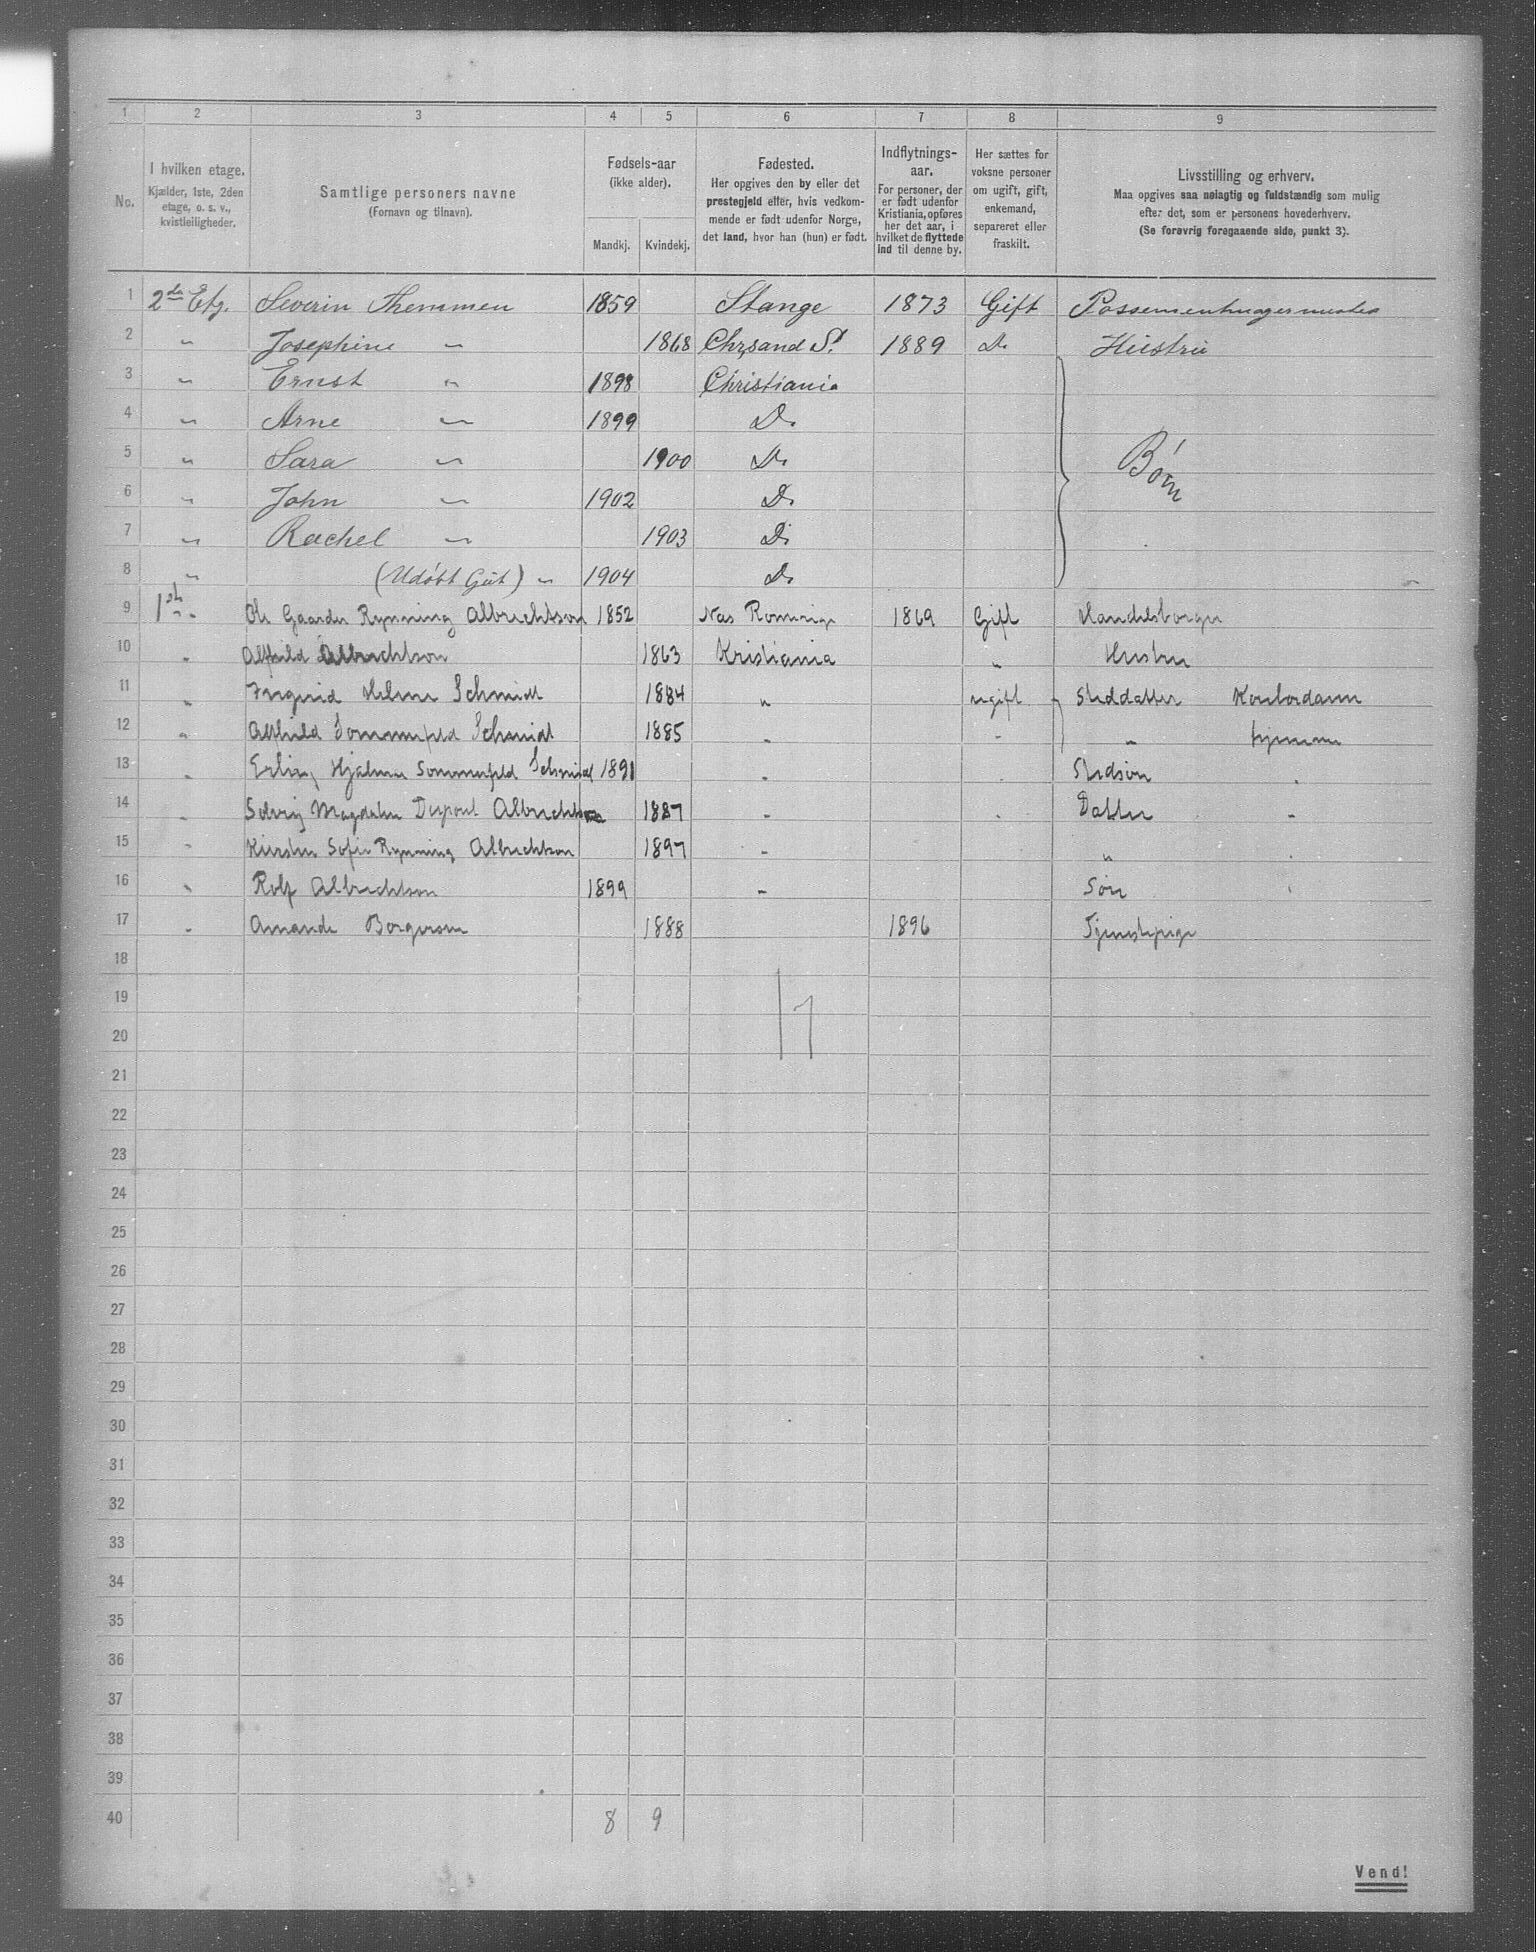 1 2 3 4 5 6 7 8 9
No.
I hvilken etage.
Kjælder, 1ste, 2den
etage, o. s. v.,
kvistleiligheder.
Samtlige personers navne
(Fornavn og tilnavn).
Fødsels-aar
(ikke alder).
Mandkj. Kvindekj.
Fødested.
Her opgives den by eller det
prestegjeld eller, hvis vedkom-
mende er født udenfor Norge,
det land, hvor han (hun) er født.
Indflytnings-
aar.
For personer, der
er født udenfor
Kristiania, opføres
her det aar, i
hvilket de flyttede
ind til denne by.
Her sættes for
voksne personer
om ugift, gift,
enkemand,
separeret eller
fraskilt.
Livsstilling og erhverv.
Maa opgives saa nøiagtig og fuldstændig som mulig
efter det, som er personens hovederhverv.
(Se forøvrig foregaaende side, punkt 3).
1 2den Etg. Severin Themmen 1859 Stange 1873 Gift
2 " Josephine " 1868 Chrsand S. 1889 Do Hüstrü
3 " Ernst " 1898 Christiania
4 " Arne " 1899 Do
5 " Sara " 1900 Do Børn
6 " John " 1902 Do
7 " Rachel " 1903 Do
8 " (Udøbt Gut) " 1904 Do
9 1st " Ole Gaarder Rynning Albrechtson 1852 Nes Romerige 1869 Gift Handelsborger
10 " Alfhild Albrechtson 1863 Kristiania " Hustru
11 " Ingerid Helene Schmidt 1884 " ugift Steddatter Kontordame
12 " Alfhild Sommerfeld Schmidt 1885 " " "
13 " Erling Hjalmar Sommerfeld Schmidt 1891 " " Stedsøn "
14 " Solveig Magdalene Albrechtson 1887 " " Datter "
15 " Kirsten Sofie Rynning Albrechtson 1897 " " "
16 " Rolf Albrechtson 1899 " Søn "
17 " Amanda Borgersen 1888 1896 Tjenestepige
18
19
17
20
21
22
23
24
25
26
27
28
29
30
31
32
33
34
35
36
37
38
39
40 8 9
Vend!